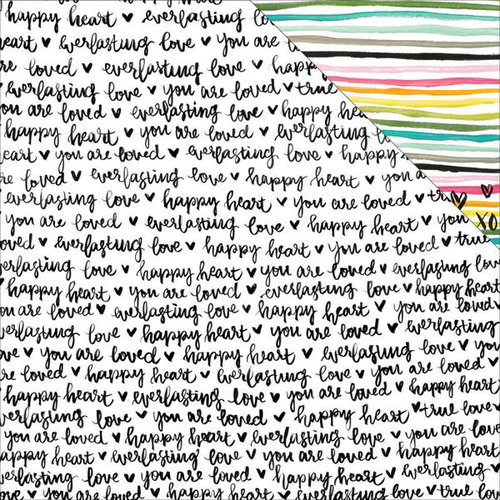 happy heart ♥ everlasting love
eart ♥ everlasting love ♥ you are
re loved ♥ everlasting love ♥ happy
love ♥ happy heart ♥ you are loved ♥ true
ou are loved ♥ everlasting love ♥ happy
happy heart ♥ you are loved ♥ everlasting
eart ♥ you are loved ♥ everlasting love ♥
re loved ♥ everlasting love ♥ happy heart
everlasting love ♥ happy heart ♥ you are loved
♥ happy heart ♥ you are loved ♥ happy heart ♥ you XO
everlasting love ♥ happy heart ♥ you are loved ♥ true
erlasting love ♥ happy heart ♥ you are loved ♥
♥ happy heart ♥ you are loved ♥ everlasting love
happy heart ♥ you are loved ♥ everlasting love ♥ happy
ou are loved ♥ everlasting love ♥ happy heart ♥
verlasting love ♥ happy heart ♥ you are loved ♥
ve ♥ you are loved ♥ happy heart ♥ everlasting
re loved ♥ happy heart ♥ everlasting love ♥ you
love ♥ everlasting love ♥ you are loved ♥ happy
happy heart ♥ everlasting love ♥ you are loved
verlasting love ♥ you are loved ♥ happy heart ♥ true love
you are loved ♥ happy heart ♥ everlasting love ♥
appy heart ♥ everlasting love ♥ you are loved ♥
verlasting love ♥ you are loved ♥ happy heart ♥